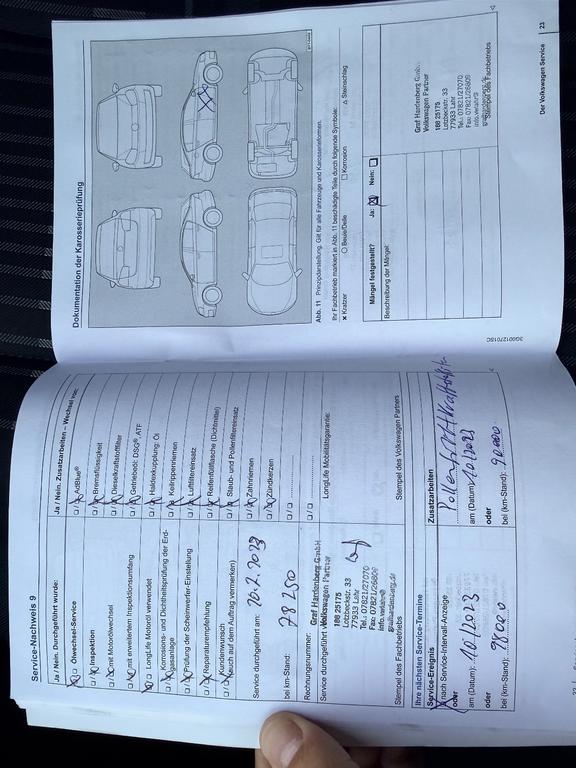 Service-Nachweis 9
Ja / Nein. Durchgeführt wurde:
Ölwechsel-Service
Inspektion
mit Motorölwechsel
mit erweitertem Inspektionsumfang
LongLife Motoröl verwendet
Korrosions- und Dichtheitsprüfung der Erd-
gasanlage
Prüfung der Scheinwerfer-Einstellung
Reparaturempfehlung
Kundenwunsch
(auch auf dem Auftrag vermerken)
Service durchgeführt am: 20.2.2023
bei km-Stand: 78250
Rechnungsnummer:
Service durchgeführt
Graf Hardenberg GmbH
Volkswagen Partner
188 25175
Lotzbeckstr. 33
77933 Lahr
Tel.: 07821/27070
Fax: 07821/26809
Stempel des Fachbetriebs
Ja / Nein. Zusatzarbeiten – Wechsel von:
AdBlue®
Bremsflüssigkeit
Dieselkraftstofffilter
Getriebeöl: DSG®, ATF
Haldexkupplung: Öl
Keilrippenriemen
Luftfiltereinsatz
Reifenfüllflasche (Dichtmittel)
Staub- und Pollenfiltereinsatz
Zahnriemen
Zündkerzen
LongLife Mobilitätsgarantie:
Stempel des Volkswagen Partners
Ihre nächsten Service-Termine
Service-Ereignis
nach Service-Intervall-Anzeige
oder
am (Datum): 10/2023
oder
bei (km-Stand): 98000
Zusatzarbeiten
am (Datum): 10/2023
oder
bei (km-Stand): 90000
Dokumentation der Karosserieprüfung
Abb. 11 Prinzipdarstellung. Gilt für alle Fahrzeuge und Karosserieformen.
Ihr Fachbetrieb markiert in Abb. 11 beschädigte Teile durch folgende Symbole:
× Kratzer ○ Beule/Delle □ Korrosion △ Steinschlag
Mängel festgestellt? Ja: Nein:
Beschreibung der Mängel:
Graf Hardenberg GmbH
Volkswagen Partner
188 25175
Lotzbeckstr. 33
77933 Lahr
Tel.: 07821/27070
Fax: 07821/26809
Stempel des Fachbetriebs
3G0012701SC
Der Volkswagen Service 23